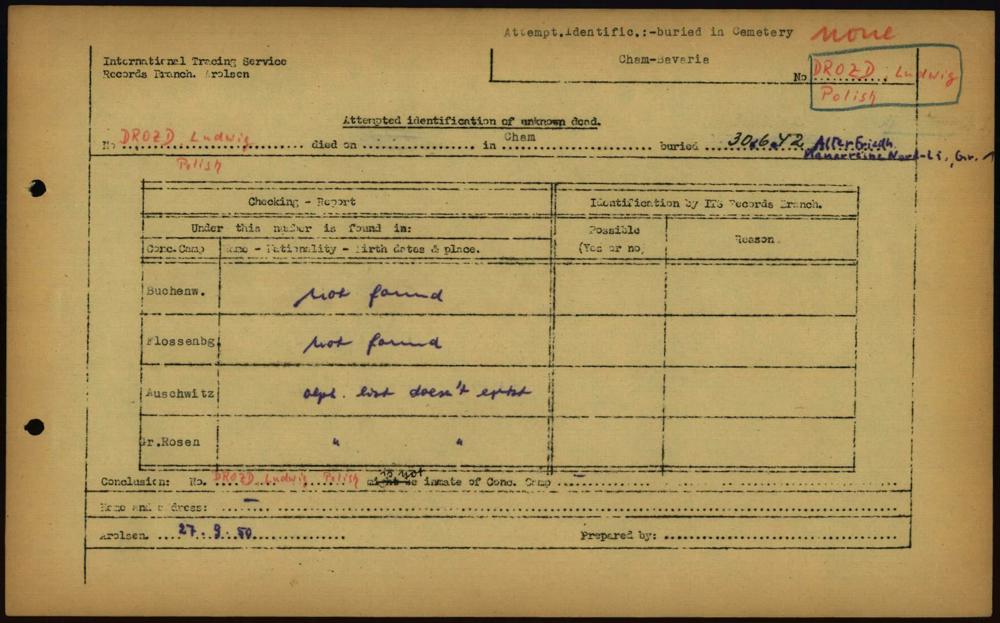 Attempt.Identific.:-buried in Cemetery none
International Tracing Service Cham-Bavaria
Records Branch. Arolsen
No DROZD, Ludwig
Polish
Attempted identification of unknown dead.
No DROZD Ludwig died on ........ in Cham buried 30.6.42 Alter Friedh.
Polish Mauerreihe Nord-Li, Gr. 1
Checking - Report Identification by ITS Records Branch.
Under this number is found in: Possible Reason
Conc.Camp Name - Nationality - Birth dates & place. (Yes or no)
Buchenw. not found
Flossenbg. not found
Auschwitz alph. list doesn't exist
Gr.Rosen " "
Conclusion: No. DROZD Ludwig Polish might be is not inmate of Conc. Camp –
Name and address: –
Arolsen. 27. 9. 50 Prepared by: